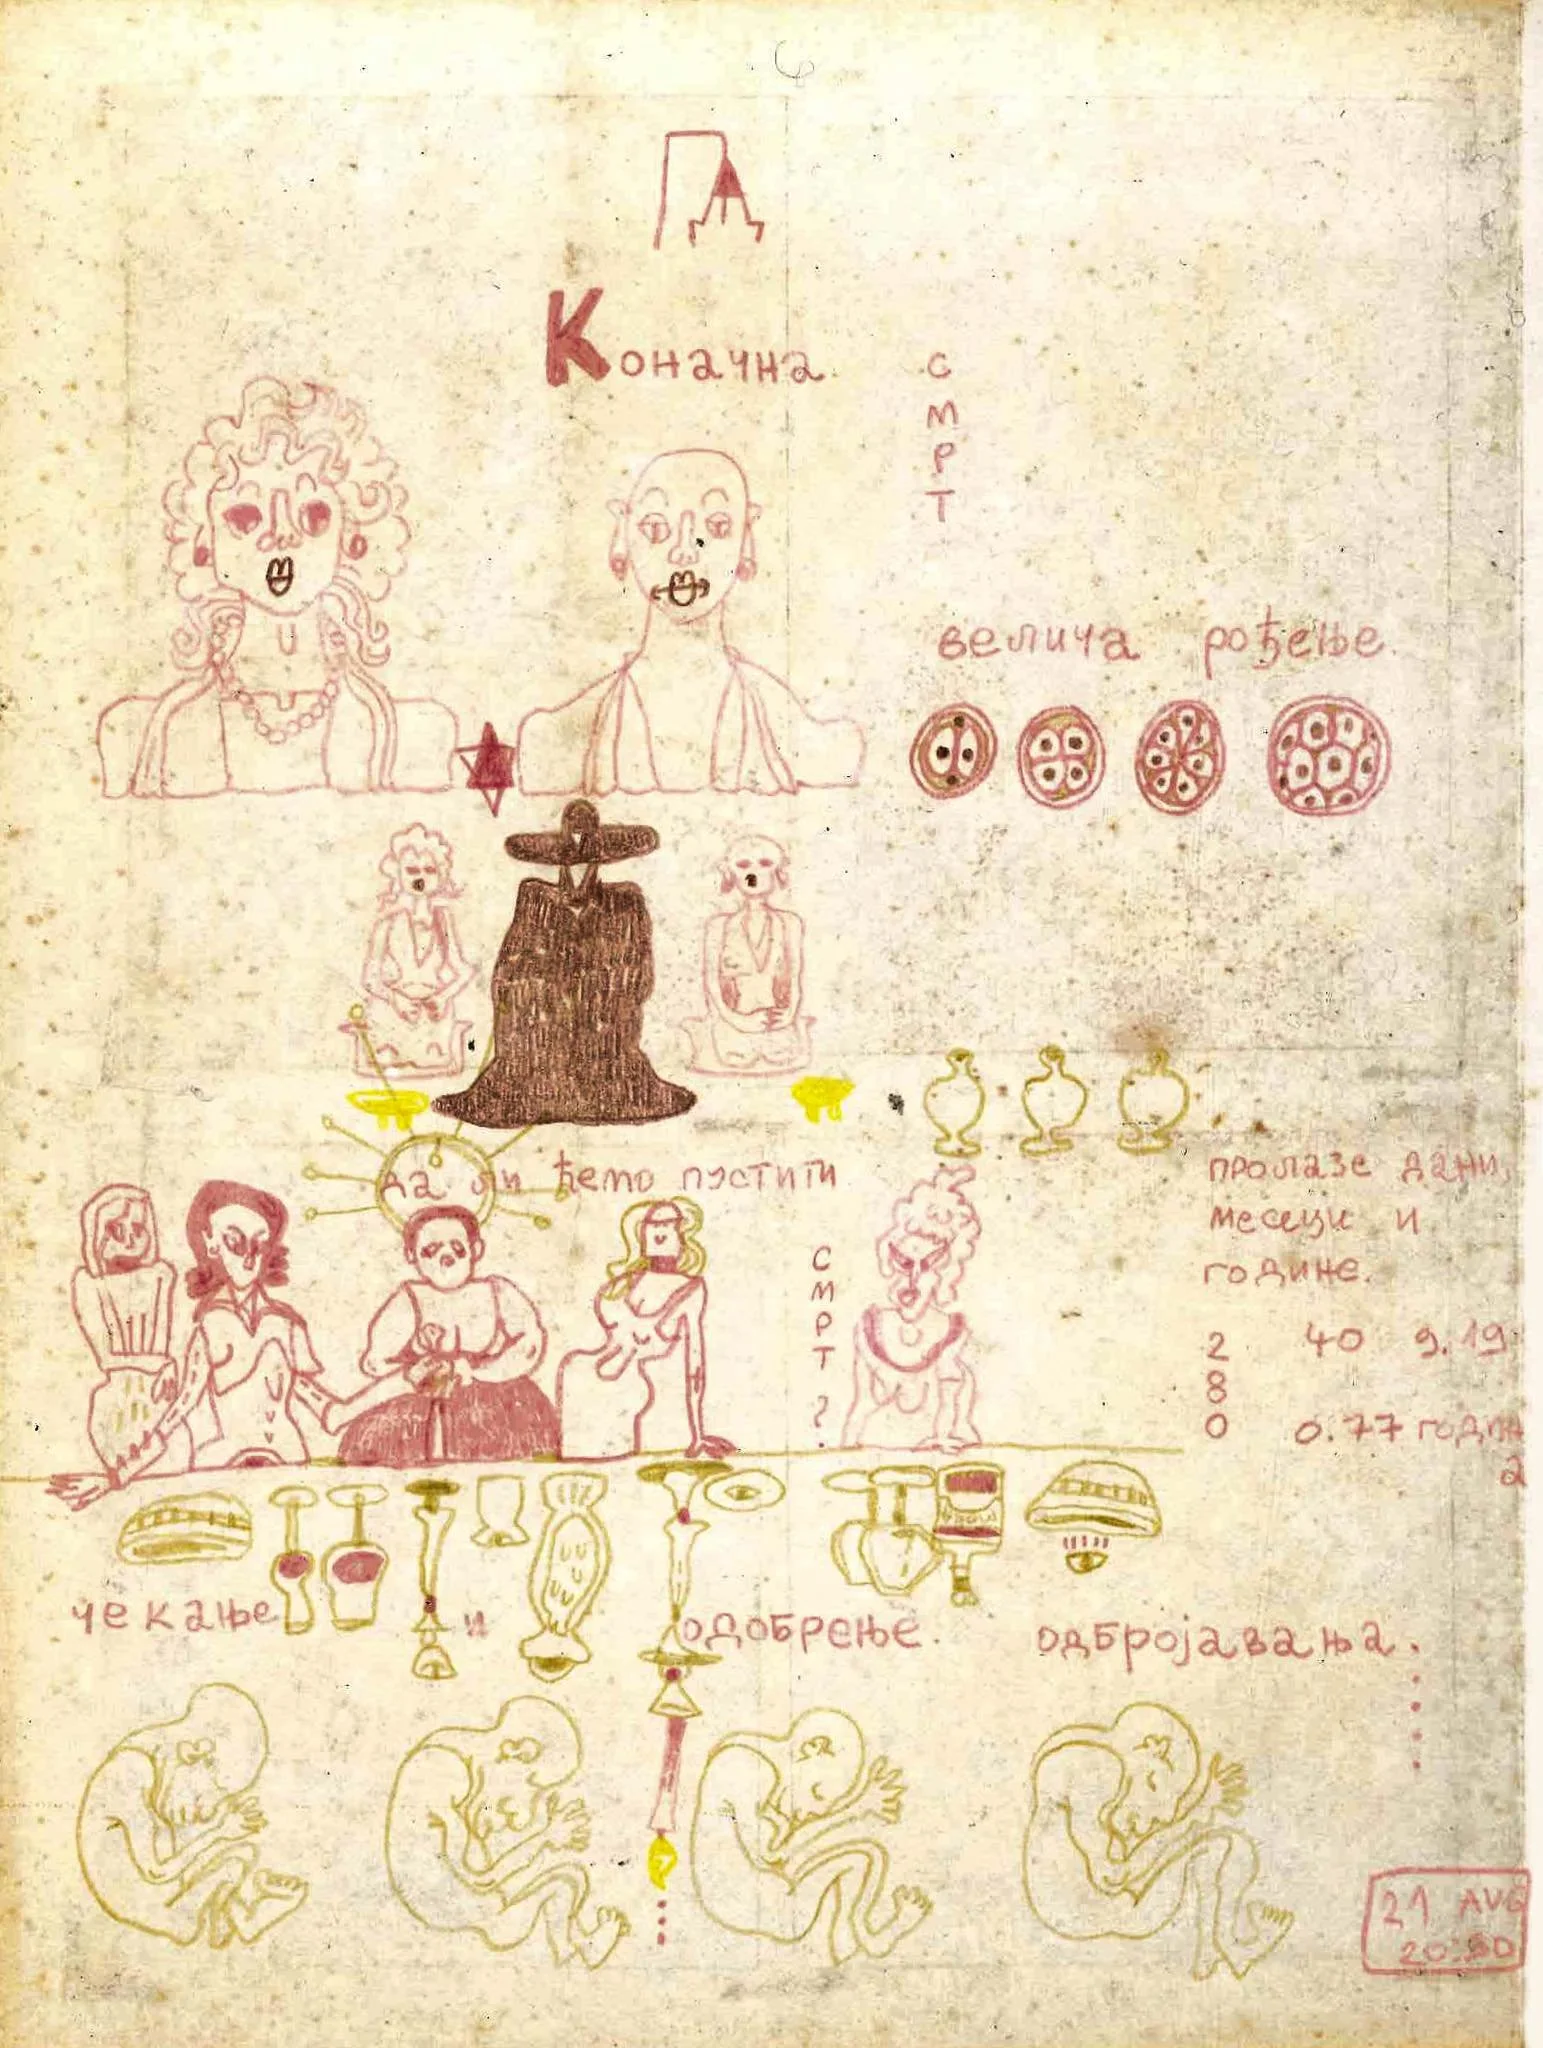 Коначна
смрт
велича рођење.
да ли ћемо пустити
смрт?
пролазе дани,
месеци и
године.
280 40 9.19
0.77 година
чекање и одобрење. одбројавања.....
21 AUG